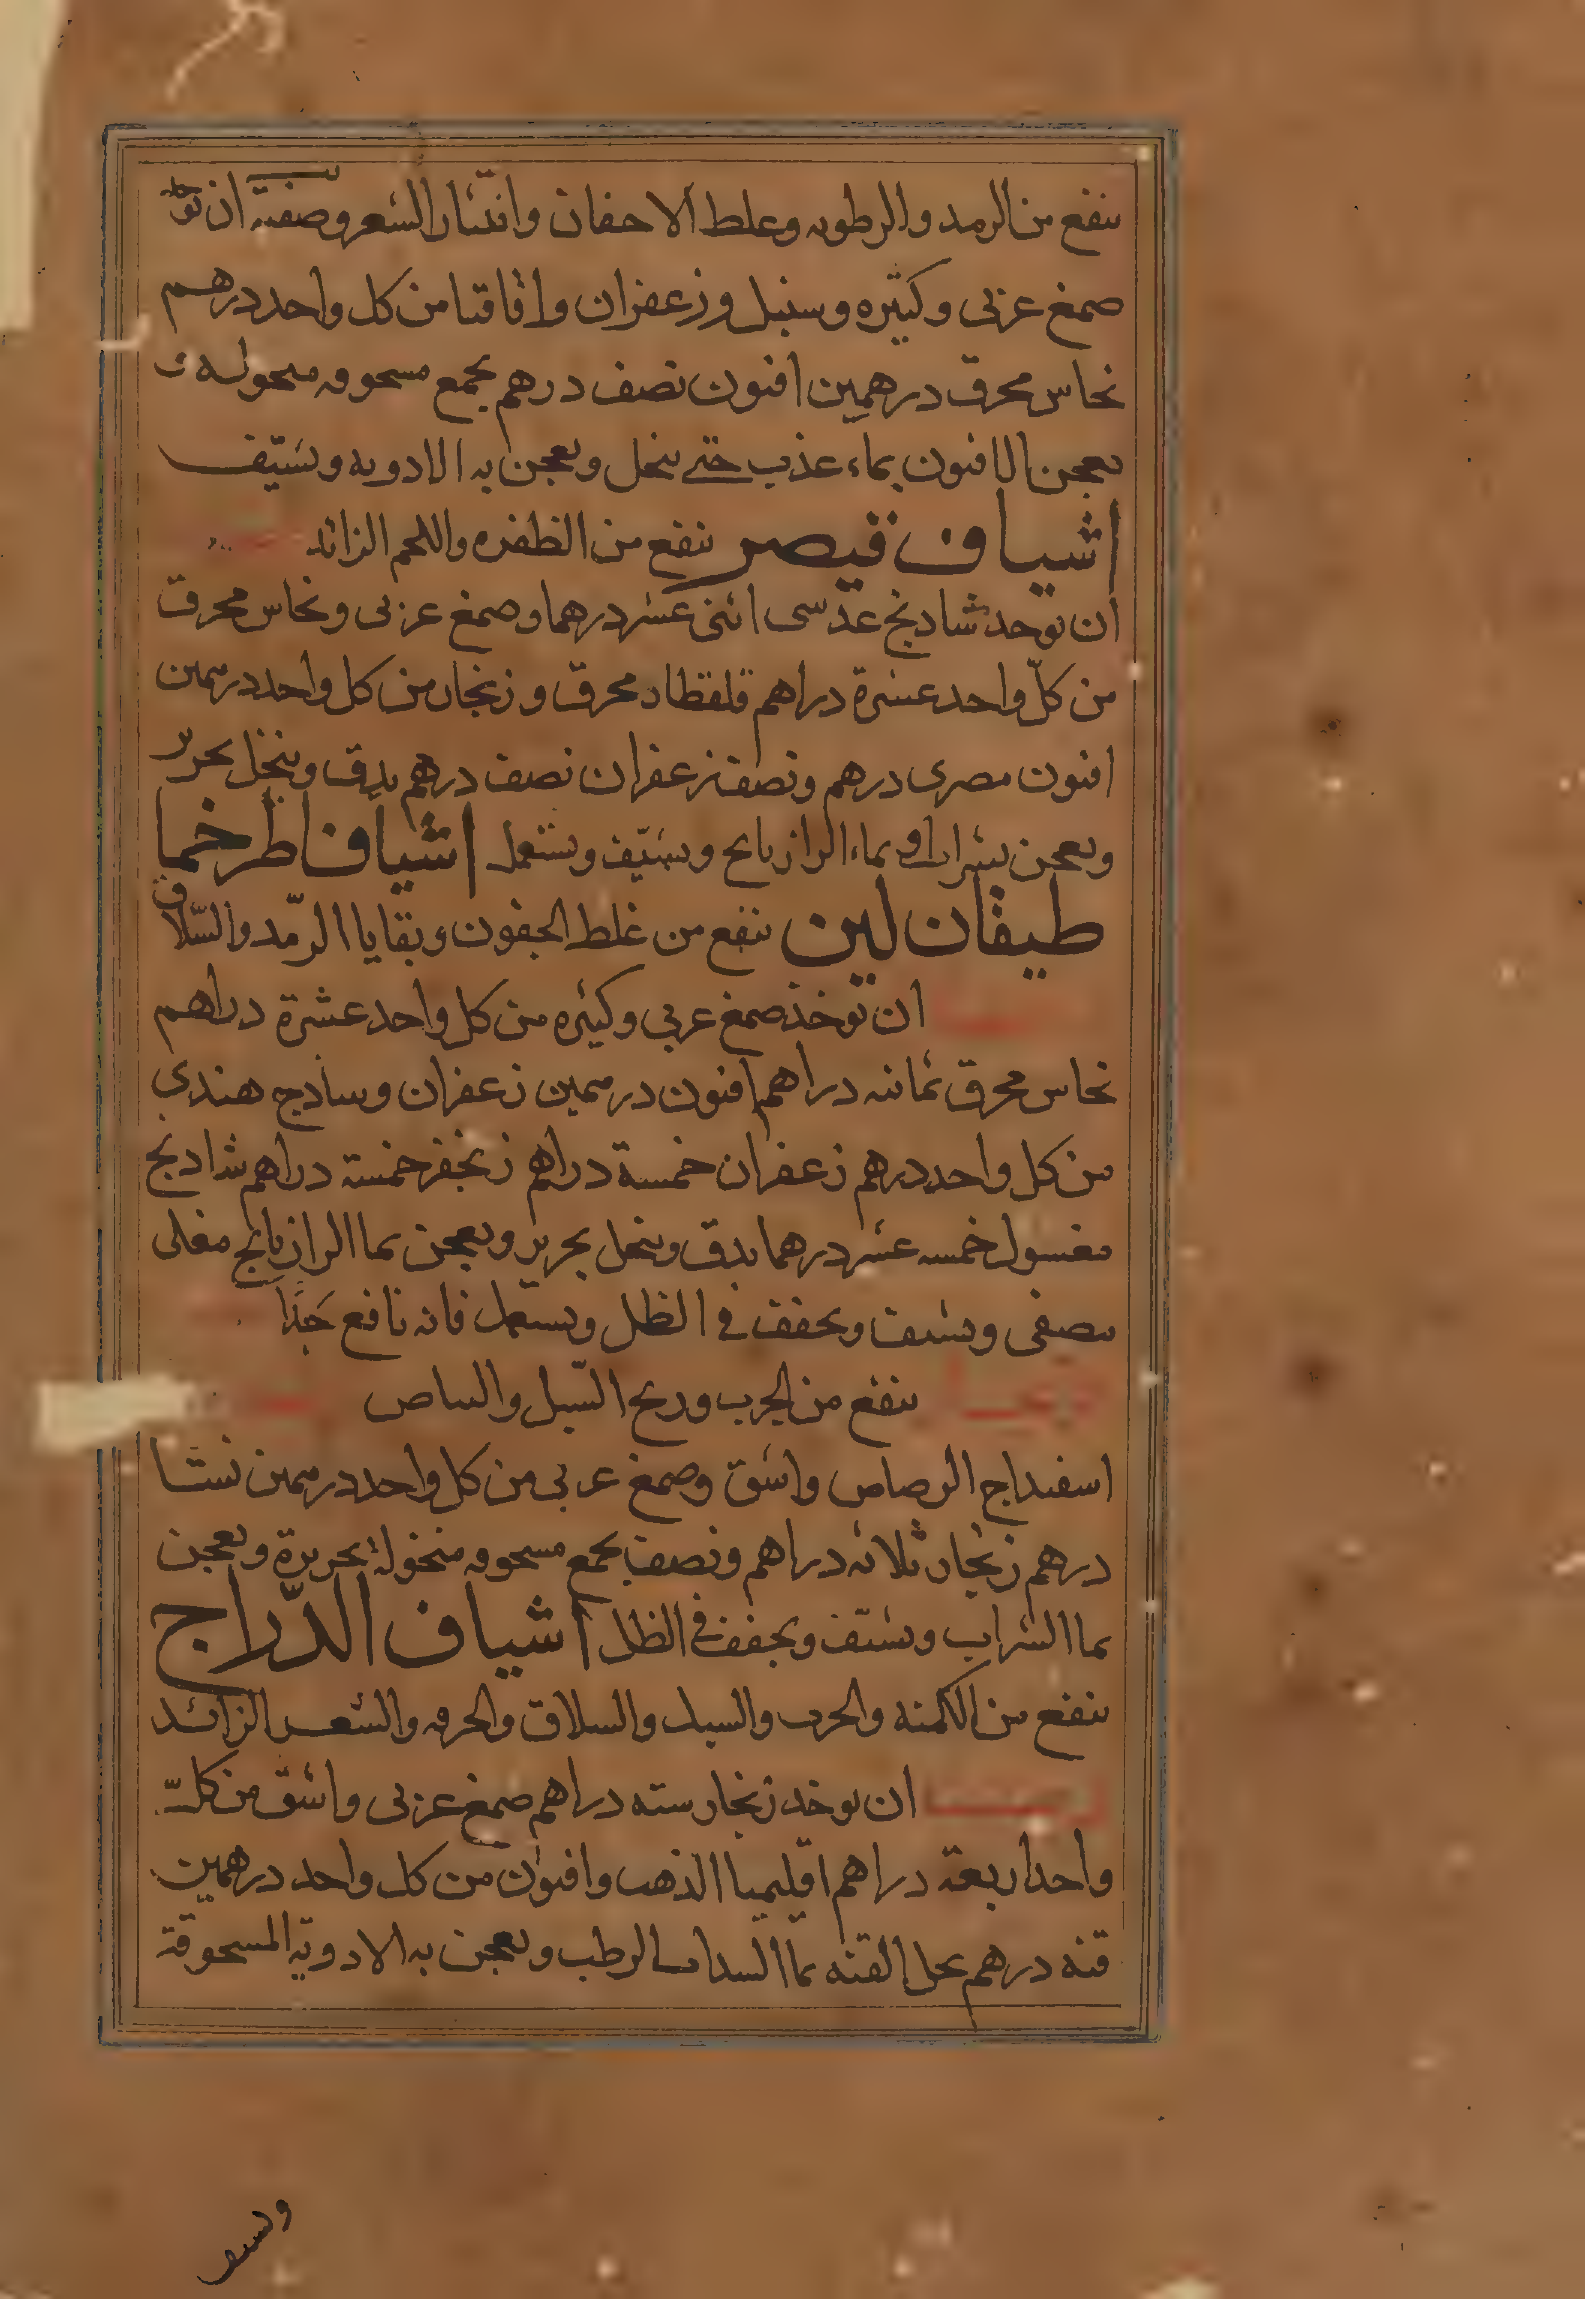 ينفع من الرمد والرطوبه وغلظ الاجفان وانتثار الشعر وصفته ان توخذ
صمغ عربى وكثيره وسنبل وزعفران واقاقيا من كل واحد درهم
نحاس محرق درهمين افيون نصف درهم يجمع مسحوقه منخوله و
يعجن الافيون بماء عذب حتى ينحل ويعجن به الادويه ويشيّف
اشياف قيصر ينفع من الظفره واللحم الزائد
ان يوخذ شادنج عدسى اثنى عشر درهما وصمغ عربى ونحاس محرق
من كلّ واحد عشرة دراهم قلقطار محرق وزنجار من كل واحد درهمين
افيون مصرى درهم ونصف زعفران نصف درهم يدق وينخل بحرير
ويعجن بشراب او بماء الرازيانج ويشيّف ويستعمل اشياف اطرخما
طيقان لين ينفع من غلظ الجفون وبقايا الرّمد والسّلاق
ان توخذ صمغ عربي وكثيره من كل واحد عشرة دراهم
نحاس محرق ثمانيه دراهم افيون درهمين زعفران وساذج هندي
من كل واحد درهم زعفران خمسة دراهم زنجفر خمسة دراهم شادنج
مغسول خمسه عشر درهما يدق وينخل بحرير ويعجن بما الرازيانج مغلى
مصفى ويشيف ويجفف في الظل ويستعمل فانه نافع جَدًا
ينفع من الجرب وريح السّبل والبياض
اسفيداج الرصاص واشق وصمغ عربى من كل واحد درهمين نشا
درهم زنجار ثلاثه دراهم ونصف يجمع مسحوقه منخولة بحريرة ويعجن
بما الشراب ويشيّف ويجفف في الظل اشياف الدّراج
ينفع من الكمنه والجرب والسبل والسلاق والحرقه والشعر الزائد
ان يوخذ زنجار سته دراهم صمغ عربى واشق من كلّ
واحد اربعة دراهم اقليميا الذهب وافيون من كل واحد درهمين
قنه درهم يحل القنه بما السداب الرطب ويعجن به الادوية المسحوقة